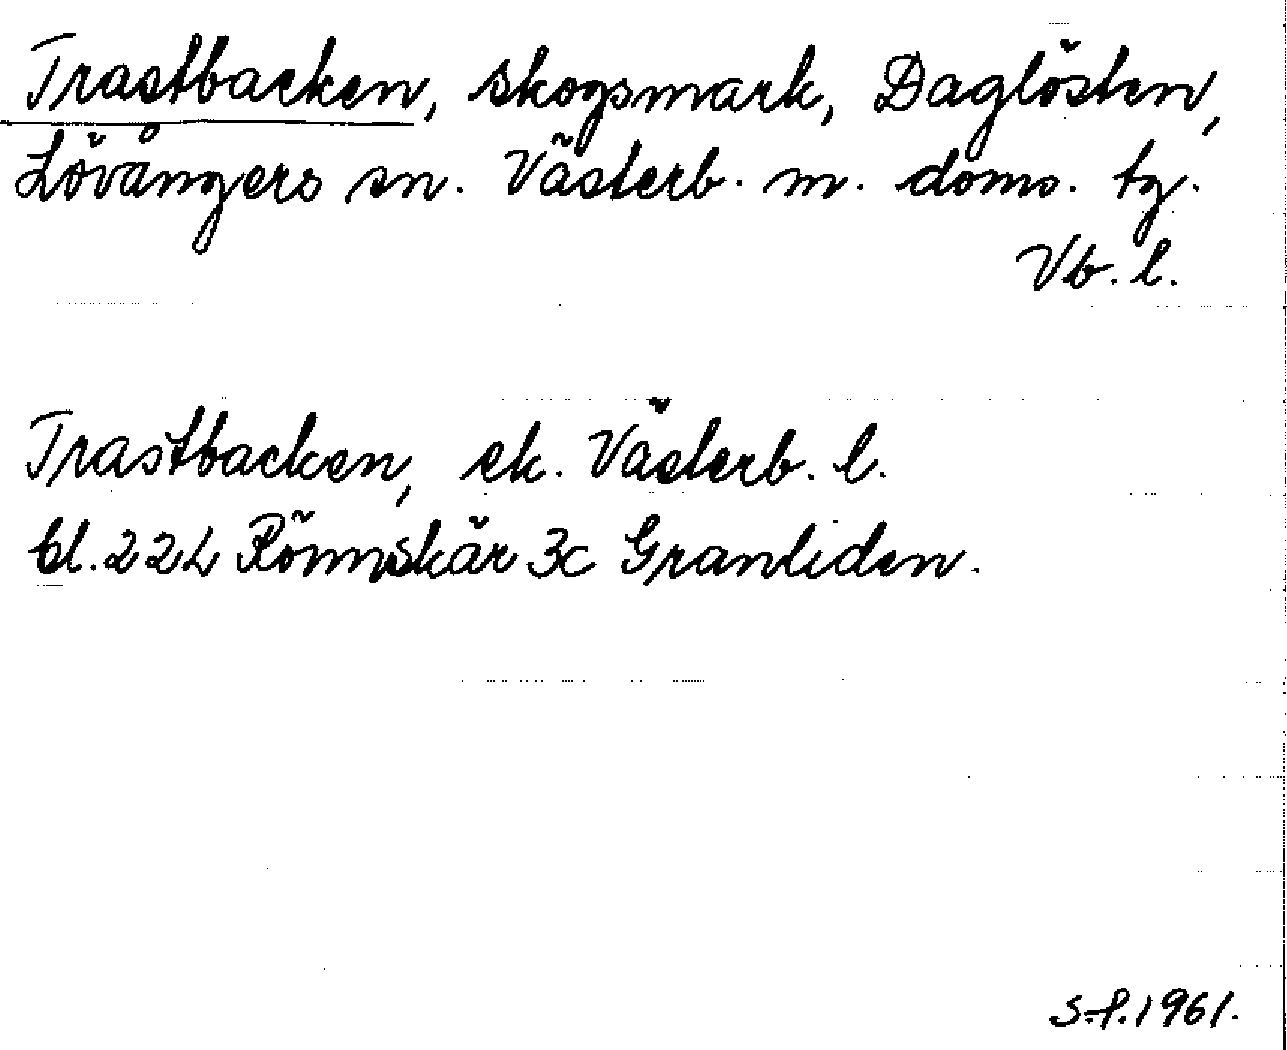 Trastbacken, skogsmark, Daglösten,
Lövångers sn. Västerb. m. doms. tg.
Vb. l.
Trastbacken, ek. Västerb. l.
bl. 22L Rönnskär 3c Granliden.
S.f. 1961.